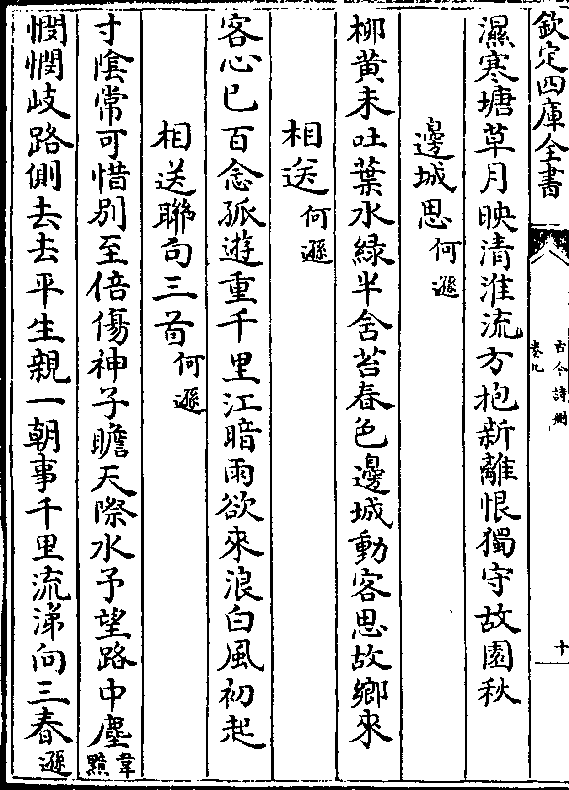 欽定四庫全書
古今詩刪
卷九
十
濕寒塘草月映清淮流方抱新離恨獨守故園秋
邊城思何遜
柳黃未吐葉水綠半含苔春色邊城動客思故鄉來
相送何遜
客心已百念孤遊重千里江暗雨欲來浪白風初起
相送聯句三首何遜
寸陰常可惜別至倍傷神子瞻天際水予望路中塵韋黯
憫憫岐路側去去平生親一朝事千里流涕向三春遜